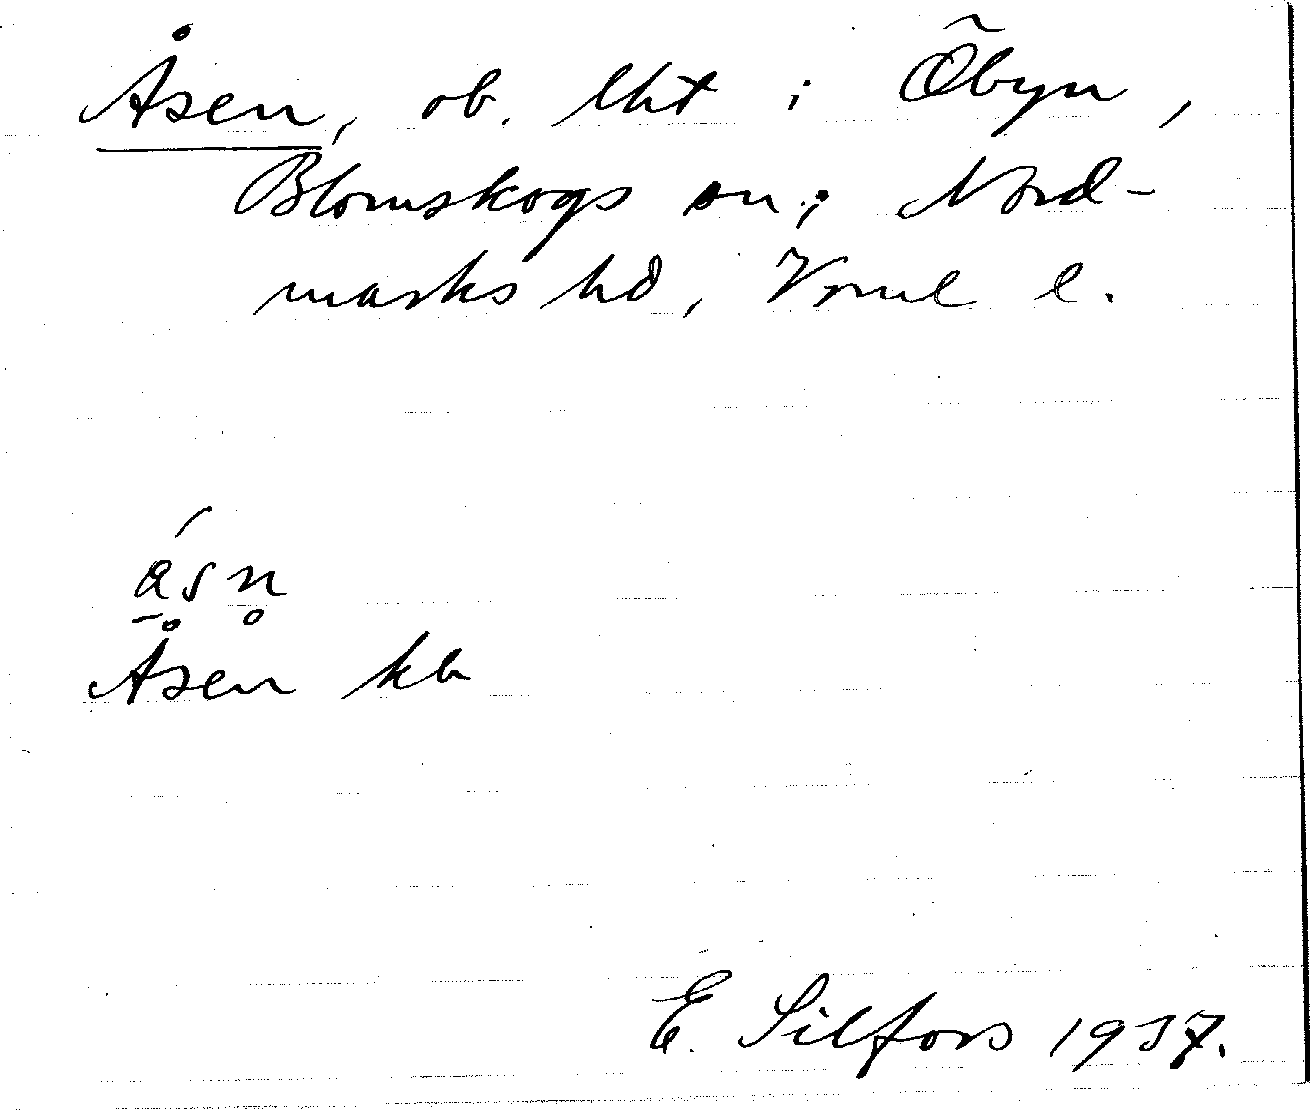 Åsen, ob. lht i Öbyn,
Blomskogs sn; Nord-
marks hd, Vrml l.
Åsen kb
E. Silfors 1937.